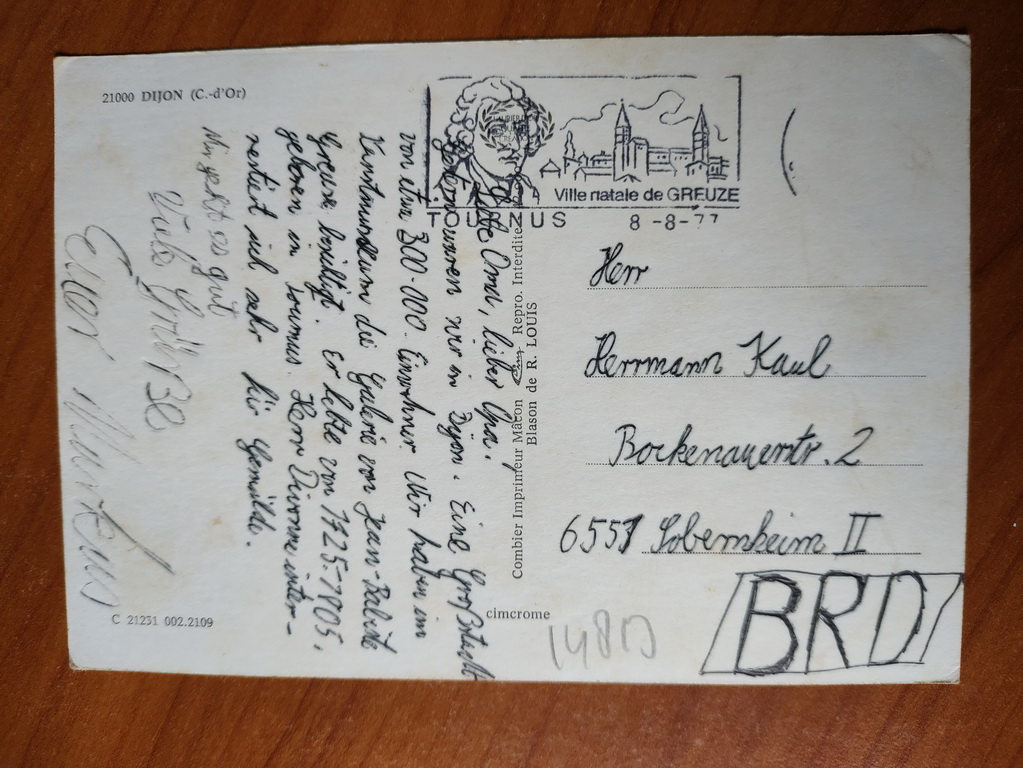 21000 DIJON (C.-d'Or)
Liebe Oma, lieber Opa.
Gestern waren wir in Dijon. Eine Großstadt
von etwa 300.000 Einwohner. Wir haben im
Kunstmuseum die Galerie von Jean-Babtiste
Greuze besichtigt. Er lebte von 1725-1805.
geboren in Tournus. Herr Thironne inter-
resiert sich sehr für Gemälde.
Mir geht es gut
Viele Grüße
Euer Markus
C 21231 002.2109
Combier Imprimeur Mâcon Cim Repro. Interdite
Blason de R. LOUIS
cimcrome
Ville natale de GREUZE
TOURNUS 8-8-77
Herr
Herrmann Kaul
Bockenauerstr. 2
6551 Sobernheim II
BRD